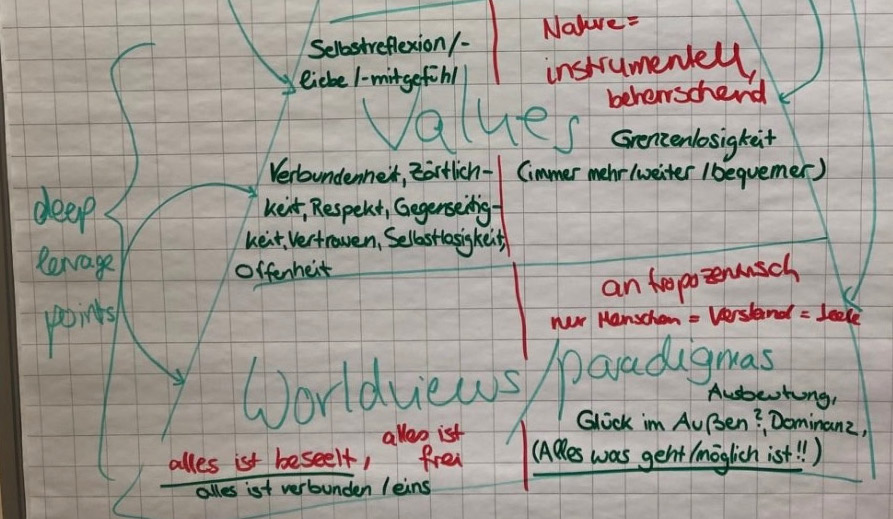 Selbstreflexion/-
liebe/-mitgefühl
Nature=
instrumentell,
beherrschend
Values
Grenzenlosigkeit
(immer mehr/weiter/bequemer)
Verbundenheit, Zärtlich-
keit, Respekt, Gegenseitig-
keit, Vertrauen, Selbstlosigkeit,
Offenheit
deep
levrage
points
antropozentrisch
nur Menschen = Verstand = Seele
Worldviews/paradigmas
Ausbeutung,
Glück im Außen?, Dominanz,
(Alles was geht/möglich ist!!)
alles ist beseelt, alles ist
frei
alles ist verbunden/eins